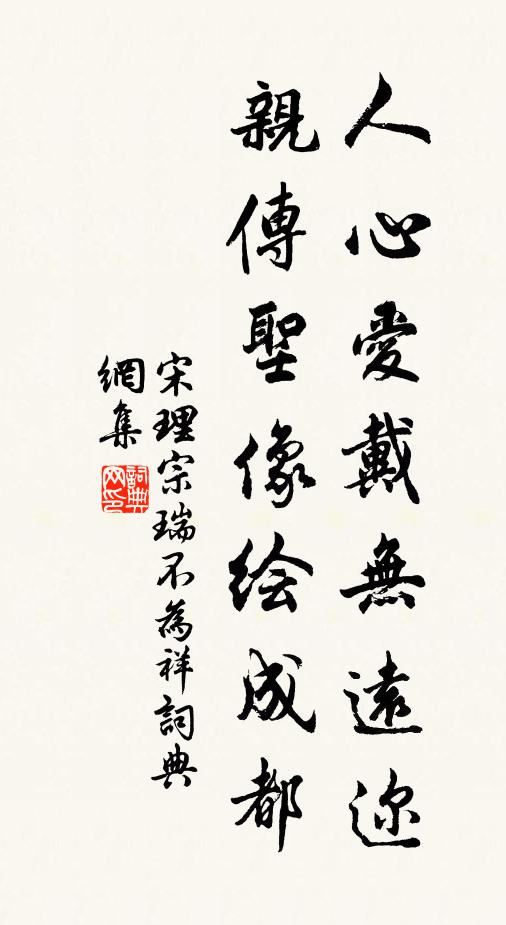 人心愛戴無遠迩
親傳聖像绘成都
宋理宗瑞不為祥詞典
網集
詞典網印